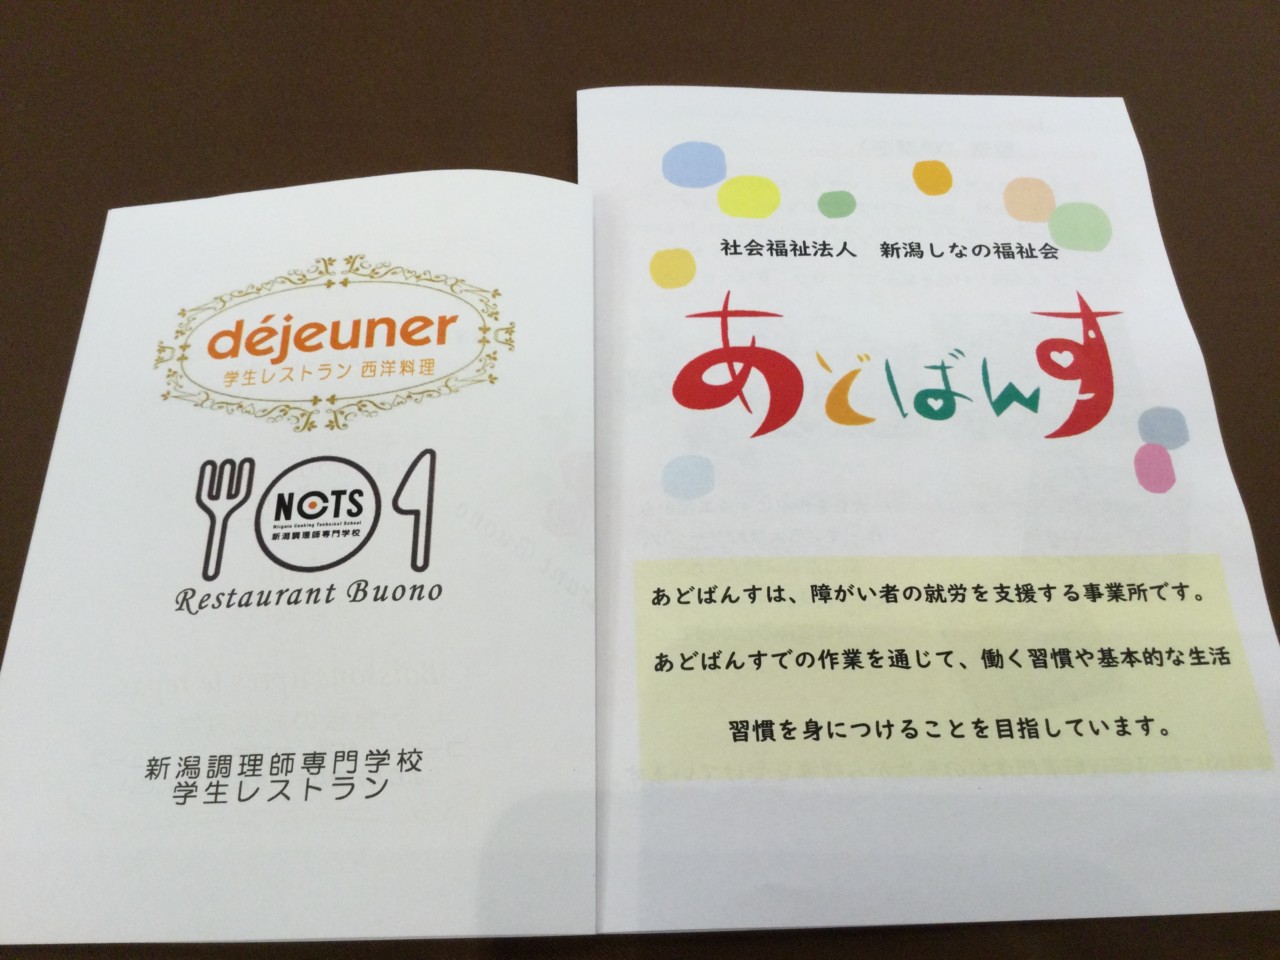 déjeuner
学生レストラン 西洋料理
NCTS
Niigata Cooking Technical School
新潟調理師専門学校
Restaurant Buono
新潟調理師専門学校
学生レストラン
社会福祉法人　新潟しなの福祉会
あどばんす
あどばんすは、障がい者の就労を支援する事業所です。
あどばんすでの作業を通じて、働く習慣や基本的な生活
習慣を身につけることを目指しています。